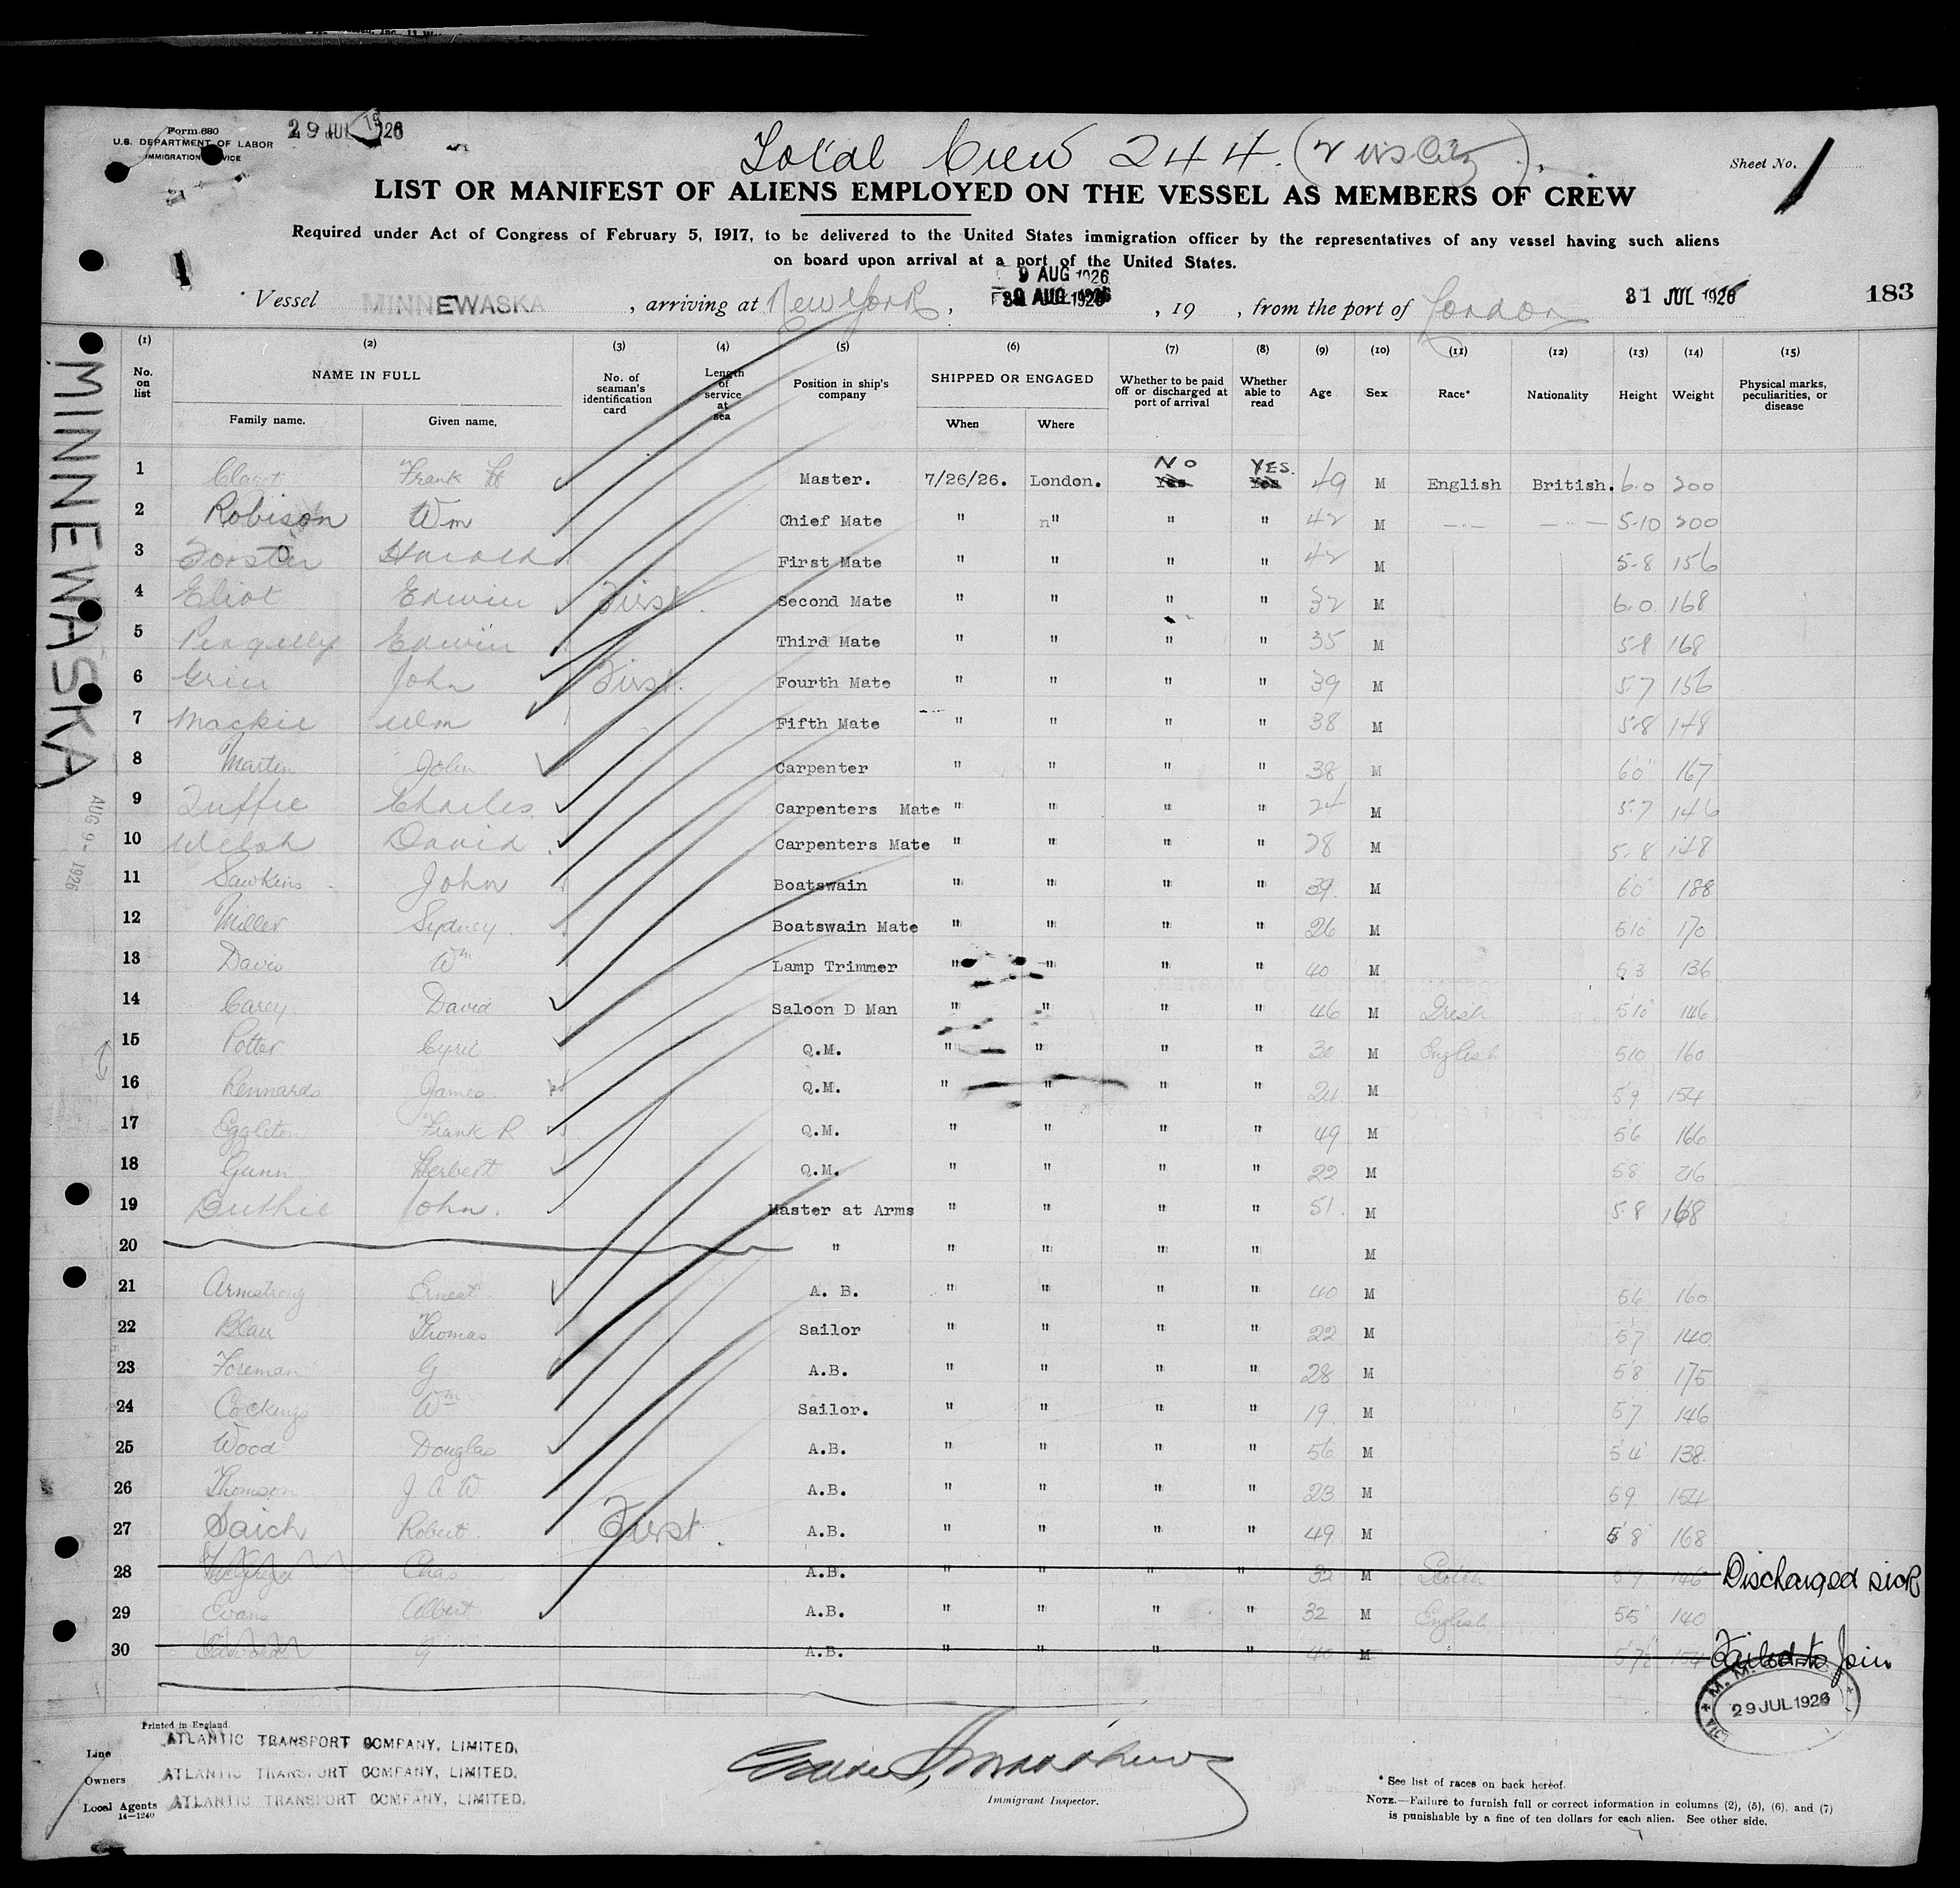 Form 680
U.S. DEPARTMENT OF LABOR
IMMIGRATION SERVICE
29 JUL 1926
Total Crew 244.
Sheet No. 1
LIST OR MANIFEST OF ALIENS EMPLOYED ON THE VESSEL AS MEMBERS OF CREW
Required under Act of Congress of February 5, 1917, to be delivered to the United States immigration officer by the representatives of any vessel having such aliens
on board upon arrival at a port of the United States.
9 AUG 1926
Vessel MINNEWASKA, arriving at New York, AUG 1926, 19 , from the port of London 31 JUL 1926 183
MINNEWASKA
AUG 9 - 1926
(1) (2) (3) (4) (5) (6) (7) (8) (9) (10) (11) (12) (13) (14) (15)
No. on list NAME IN FULL No. of seaman's identification card Length of service at sea Position in ship's company SHIPPED OR ENGAGED Whether to be paid off or discharged at port of arrival Whether able to read Age Sex Race* Nationality Height Weight Physical marks, peculiarities, or disease
Family name. Given name. When Where
1 Claret Frank Master. 7/26/26. London. NO Yes YES. Yes 49 M English British. 6.0 200
2 Robison Wm Chief Mate " " " " 42 M 5-10 200
3 Forster Harold First Mate " " " " 42 M 5-8 156
4 Eliot Edwin First. Second Mate " " " " 32 M 6.0 168
5 Pengelly Edwin Third Mate " " " " 35 M 5-8 168
6 John First. Fourth Mate " " " " 39 M 5.7 156
7 Mackie Wm Fifth Mate " " " " 38 M 5-8 148
8 Martin John Carpenter " " " " 38 M 6'0" 167
9 Charles Carpenters Mate " " " " 24 M 5.7 146
10 Welsh David Carpenters Mate " " " " 28 M 5-8 148
11 Sawkins John Boatswain " " " " 39 M 6'0 188
12 Miller Sydney Boatswain Mate " " " " 26 M 5'10 170
13 Davis Wm Lamp Trimmer " " " " 40 M 5'3 136
14 Carey David Saloon D Man " " " " 46 M Irish 5'10 146
15 Potter Cyril Q.M. " " " " 30 M English 510 160
16 Rennards James Q.M. " " " " 24 M 5'9 154
17 Eggleton Frank R Q.M. " " " " 49 M 5'6 166
18 Gunn Herbert Q.M. " " " " 22 M 5'8
19 Duthie John. Master at Arms " " " " 51. M 5-8 168
20 " " " " " M
21 Armstrong Ernest A. B. " " " " 40 M 5'6 160
22 Blair Thomas Sailor " " " " 22 M 5'7 140
23 Foreman G A.B. " " " " 28 M 5'8 175
24 Cockings Wm Sailor. " " " " 19 M 5'7 146
25 Wood Douglas A.B. " " " " 56 M 5'4 138
26 Thomson J A W A.B. " " " " 23 M 5'9 154
27 Saich Robert First. A.B. " " " " 49 M 5'8 168
28 Chas A.B. " " " " 32 M Scotch 5'9 146 Discharged sick
29 Evans Albert A.B. " " " " 32 M English 5'5 140
30 G A.B. " " " " 40 M 5'7½ 154 Failed to Join
29 JUL 1926
Printed in England.
Line ATLANTIC TRANSPORT COMPANY, LIMITED.
Owners ATLANTIC TRANSPORT COMPANY, LIMITED.
Local Agents ATLANTIC TRANSPORT COMPANY, LIMITED.
14—1240
Immigrant Inspector.
* See list of races on back hereof.
NOTE.—Failure to furnish full or correct information in columns (2), (5), (6), and (7)
is punishable by a fine of ten dollars for each alien. See other side.